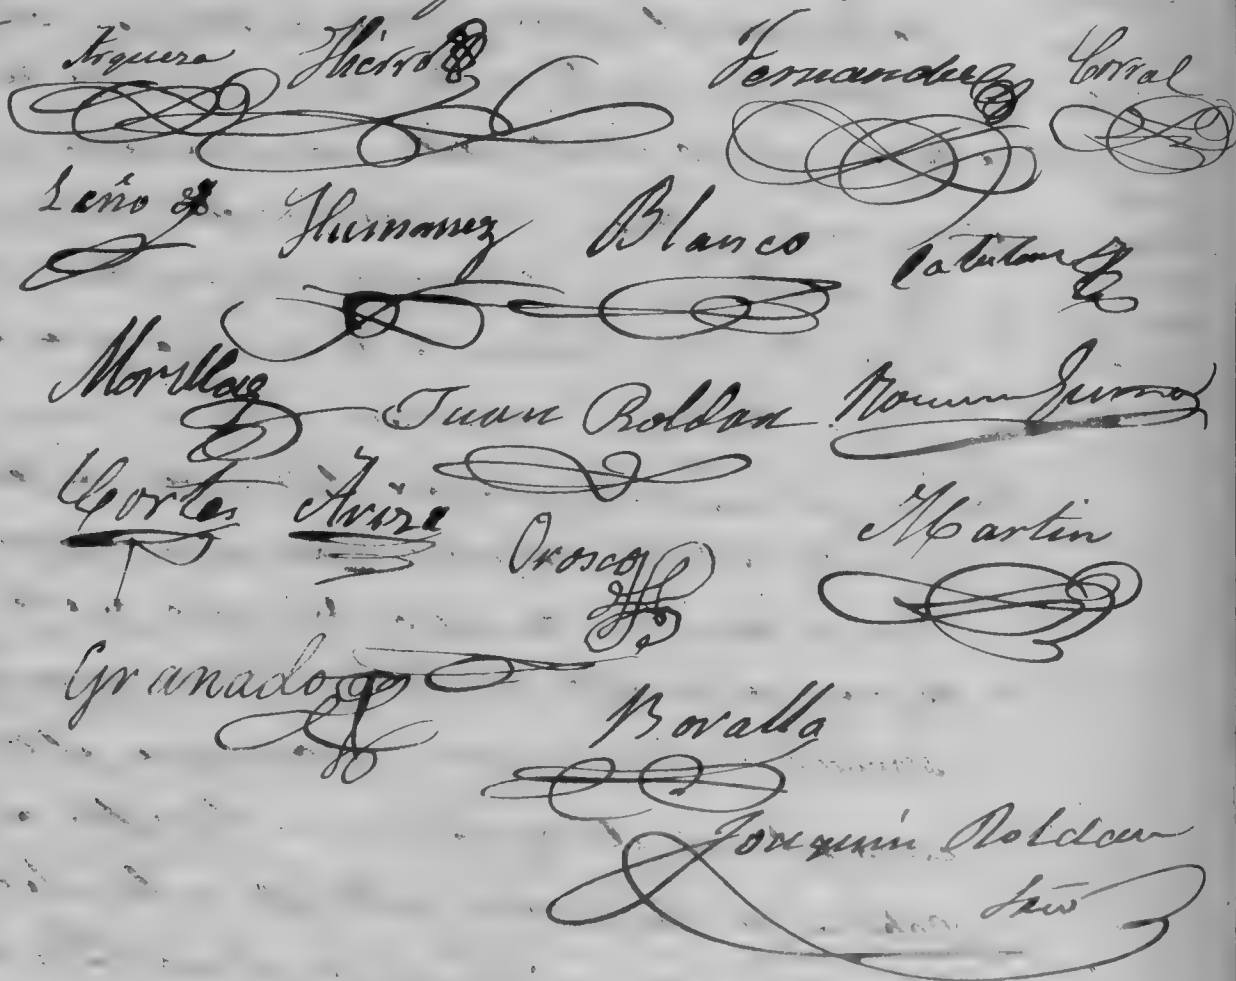 Arguera Hierro Fernandez Corral
Leño Humanez Blanco
Morillas Juan Roldan
Cortes Ariza Orosco Martin
Granados
Boralla
Joaquin Roldan
Srio